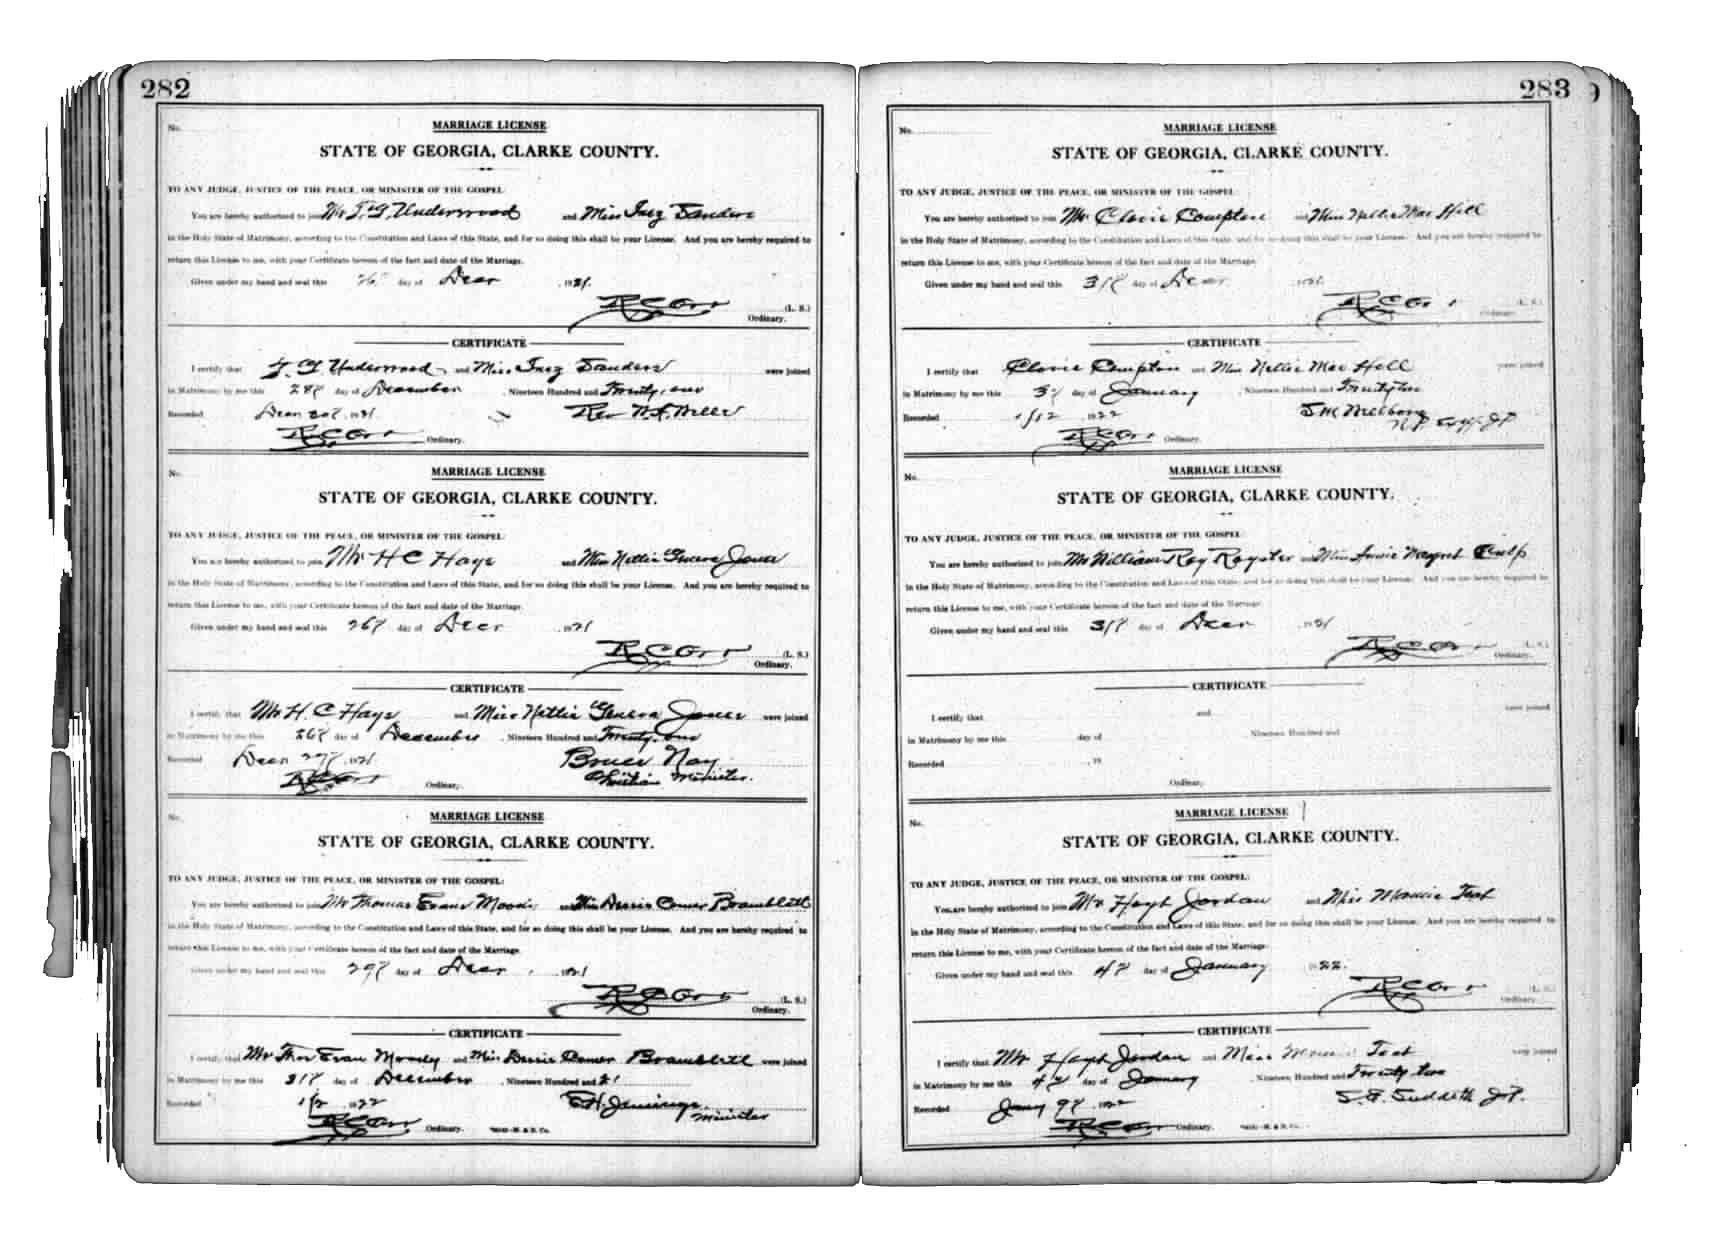 282
No.
MARRIAGE LICENSE
STATE OF GEORGIA, CLARKE COUNTY.
TO ANY JUDGE, JUSTICE OF THE PEACE, OR MINISTER OF THE GOSPEL:
You are hereby authorized to join Mr T. G. Underwood and Miss Inez Sanders
in the Holy State of Matrimony, according to the Constitution and Laws of this State, and for so doing this shall be your License. And you are hereby required to
return this License to me, with your Certificate hereon of the fact and date of the Marriage.
Given under my hand and seal this day of Decr , 1921.
R C Orr (L. S.)
Ordinary.
CERTIFICATE
I certify that Underwood and Miss Inez Sanders were joined
in Matrimony by me this 28th day of December , Nineteen Hundred and Twenty, one
Recorded Decr , 1921 Rev
R C Orr Ordinary.
No.
MARRIAGE LICENSE
STATE OF GEORGIA, CLARKE COUNTY.
TO ANY JUDGE, JUSTICE OF THE PEACE, OR MINISTER OF THE GOSPEL:
You are hereby authorized to join Mr H C Hays and Miss Nettie Geneva Jones
in the Holy State of Matrimony, according to the Constitution and Laws of this State, and for so doing this shall be your License. And you are hereby required to
return this License to me, with your Certificate hereon of the fact and date of the Marriage.
Given under my hand and seal this 26th day of Decr , 1921
R C Orr (L. S.)
Ordinary.
CERTIFICATE
I certify that Mr. H. C Hays and Miss Nettie Geneva Jones were joined
in Matrimony by me this 26th day of December , Nineteen Hundred and Twenty, one
Recorded Decr 29th , 1921 Bruce Nay
R C Orr Ordinary. Christian Minister.
No.
MARRIAGE LICENSE
STATE OF GEORGIA, CLARKE COUNTY.
TO ANY JUDGE, JUSTICE OF THE PEACE, OR MINISTER OF THE GOSPEL:
You are hereby authorized to join Mr Thomas Evans Moody and Miss Comer Bramblett
in the Holy State of Matrimony, according to the Constitution and Laws of this State, and for so doing this shall be your License. And you are hereby required to
return this License to me, with your Certificate hereon of the fact and date of the Marriage.
Given under my hand and seal this 29th day of Decr , 1921
R C Orr (L. S.)
Ordinary.
CERTIFICATE
I certify that Mr Thos Evan Moody and Miss Comer Bramblett were joined
in Matrimony by me this 31st day of December , Nineteen Hundred and 21
Recorded 1/2 1922 E H. Jennings
R C Orr Ordinary. Minister
283
No.
MARRIAGE LICENSE
STATE OF GEORGIA, CLARKE COUNTY.
TO ANY JUDGE, JUSTICE OF THE PEACE, OR MINISTER OF THE GOSPEL
You are hereby authorized to join Mr Clovie Compton and Miss Nellie Mae Hill
in the Holy State of Matrimony, according to the Constitution and Laws of this State, and for so doing this shall be your License. And you are hereby required to
return this License to me, with your Certificate hereon of the fact and date of the Marriage.
Given under my hand and seal this 31st day of Decr 1921
R C Orr (L. S.)
Ordinary.
CERTIFICATE
I certify that Clovie Compton and Miss Nellie Mae Hill were joined
in Matrimony by me this 3rd day of January , Nineteen Hundred and Twenty two
Recorded 1/12 1922
R C Orr Ordinary.
No.
MARRIAGE LICENSE
STATE OF GEORGIA, CLARKE COUNTY.
TO ANY JUDGE, JUSTICE OF THE PEACE, OR MINISTER OF THE GOSPEL
You are hereby authorized to join Mr William Roy Royster and Miss Culp
in the Holy State of Matrimony, according to the Constitution and Laws of this State, and for so doing this shall be your License. And you are hereby required to
return this License to me, with your Certificate hereon of the fact and date of the Marriage.
Given under my hand and seal this 31st day of Decr , 1921
R C Orr (L. S.)
Ordinary.
CERTIFICATE
I certify that and were joined
in Matrimony by me this day of Nineteen Hundred and
Recorded , 19
Ordinary.
No.
MARRIAGE LICENSE
STATE OF GEORGIA, CLARKE COUNTY.
TO ANY JUDGE, JUSTICE OF THE PEACE, OR MINISTER OF THE GOSPEL:
You are hereby authorized to join Mr Hoyt Jordan and Miss Test
in the Holy State of Matrimony, according to the Constitution and Laws of this State, and for so doing this shall be your License. And you are hereby required to
return this License to me, with your Certificate hereon of the fact and date of the Marriage.
Given under my hand and seal this 4th day of January 1922.
R C Orr (L. S.)
Ordinary.
CERTIFICATE
I certify that Mr Hoyt Jordan and Miss Test were joined
in Matrimony by me this 4th day of January , Nineteen Hundred and Twenty two
Recorded Jany 9th 1922 Suddeth J.P.
R C Orr Ordinary.